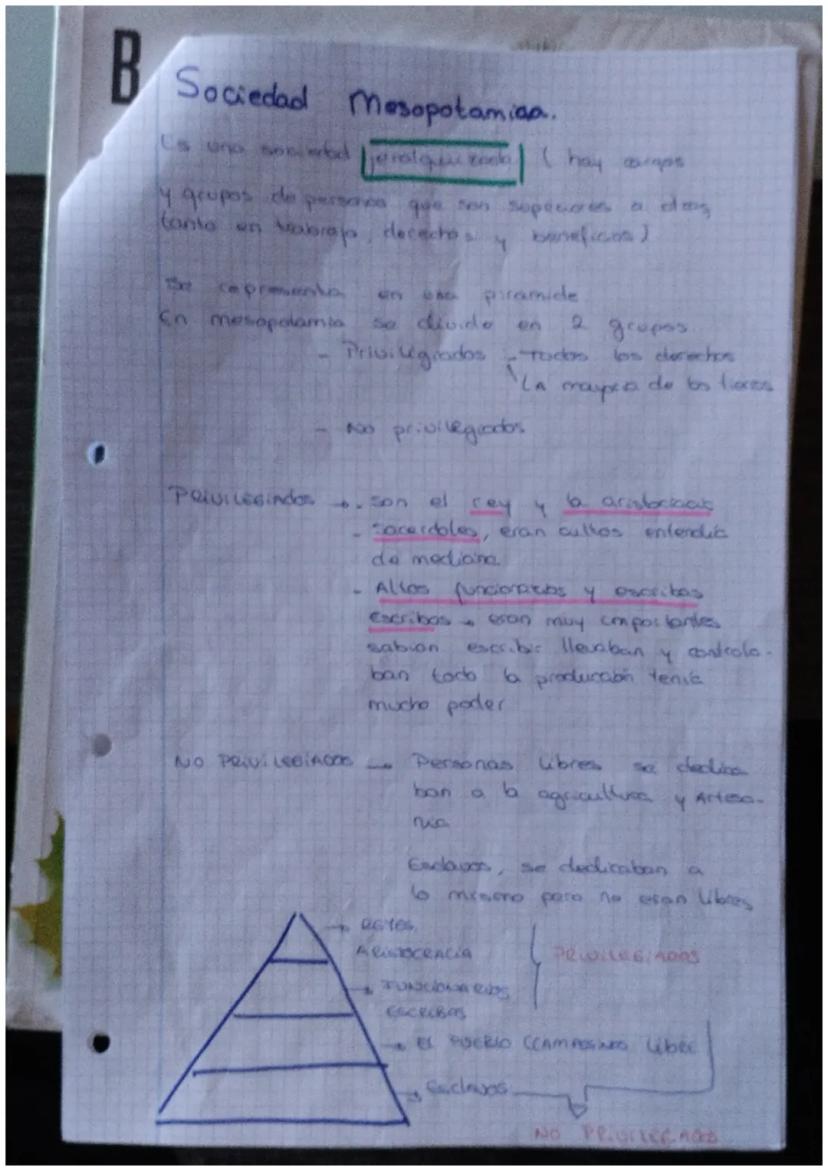 B
Sociedad Mesopotamica.
Es una sociedad jeralquizada ( hay cargos
y grupos de personas que son superiores a otras
tanto en trabajo, derechos y beneficios)
Se representa en una piramide
En mesopotamia se divide en 2 grupos.
- Privilegiados - Todos los derechos
LA mayoria de las tierras
- No privilegiados
PRIVILEGIADOS → - son el rey y la aristocracia
- sacerdotes, eran cultos entendia
de medicina.
- Altos funcionarios y escribas
escribas → eran muy importantes
sabian escribir llevaban y controla-
ban toda la producción tenia
mucho poder
NO PRIVILEGIADOS → Personas libres se dedica
ban a la agricultura y Artesa-
nia
Esclavos, se dedicaban a
lo mismo pero no eran libres
→ REYES,
ARISTOCRACIA
PRIVILEGIADOS
→ FUNCIONARIOS
ESCRIBAS
→ El PUEBLO (CAMPESINO libre
→ Esclavos
NO PRIVILEGIADO